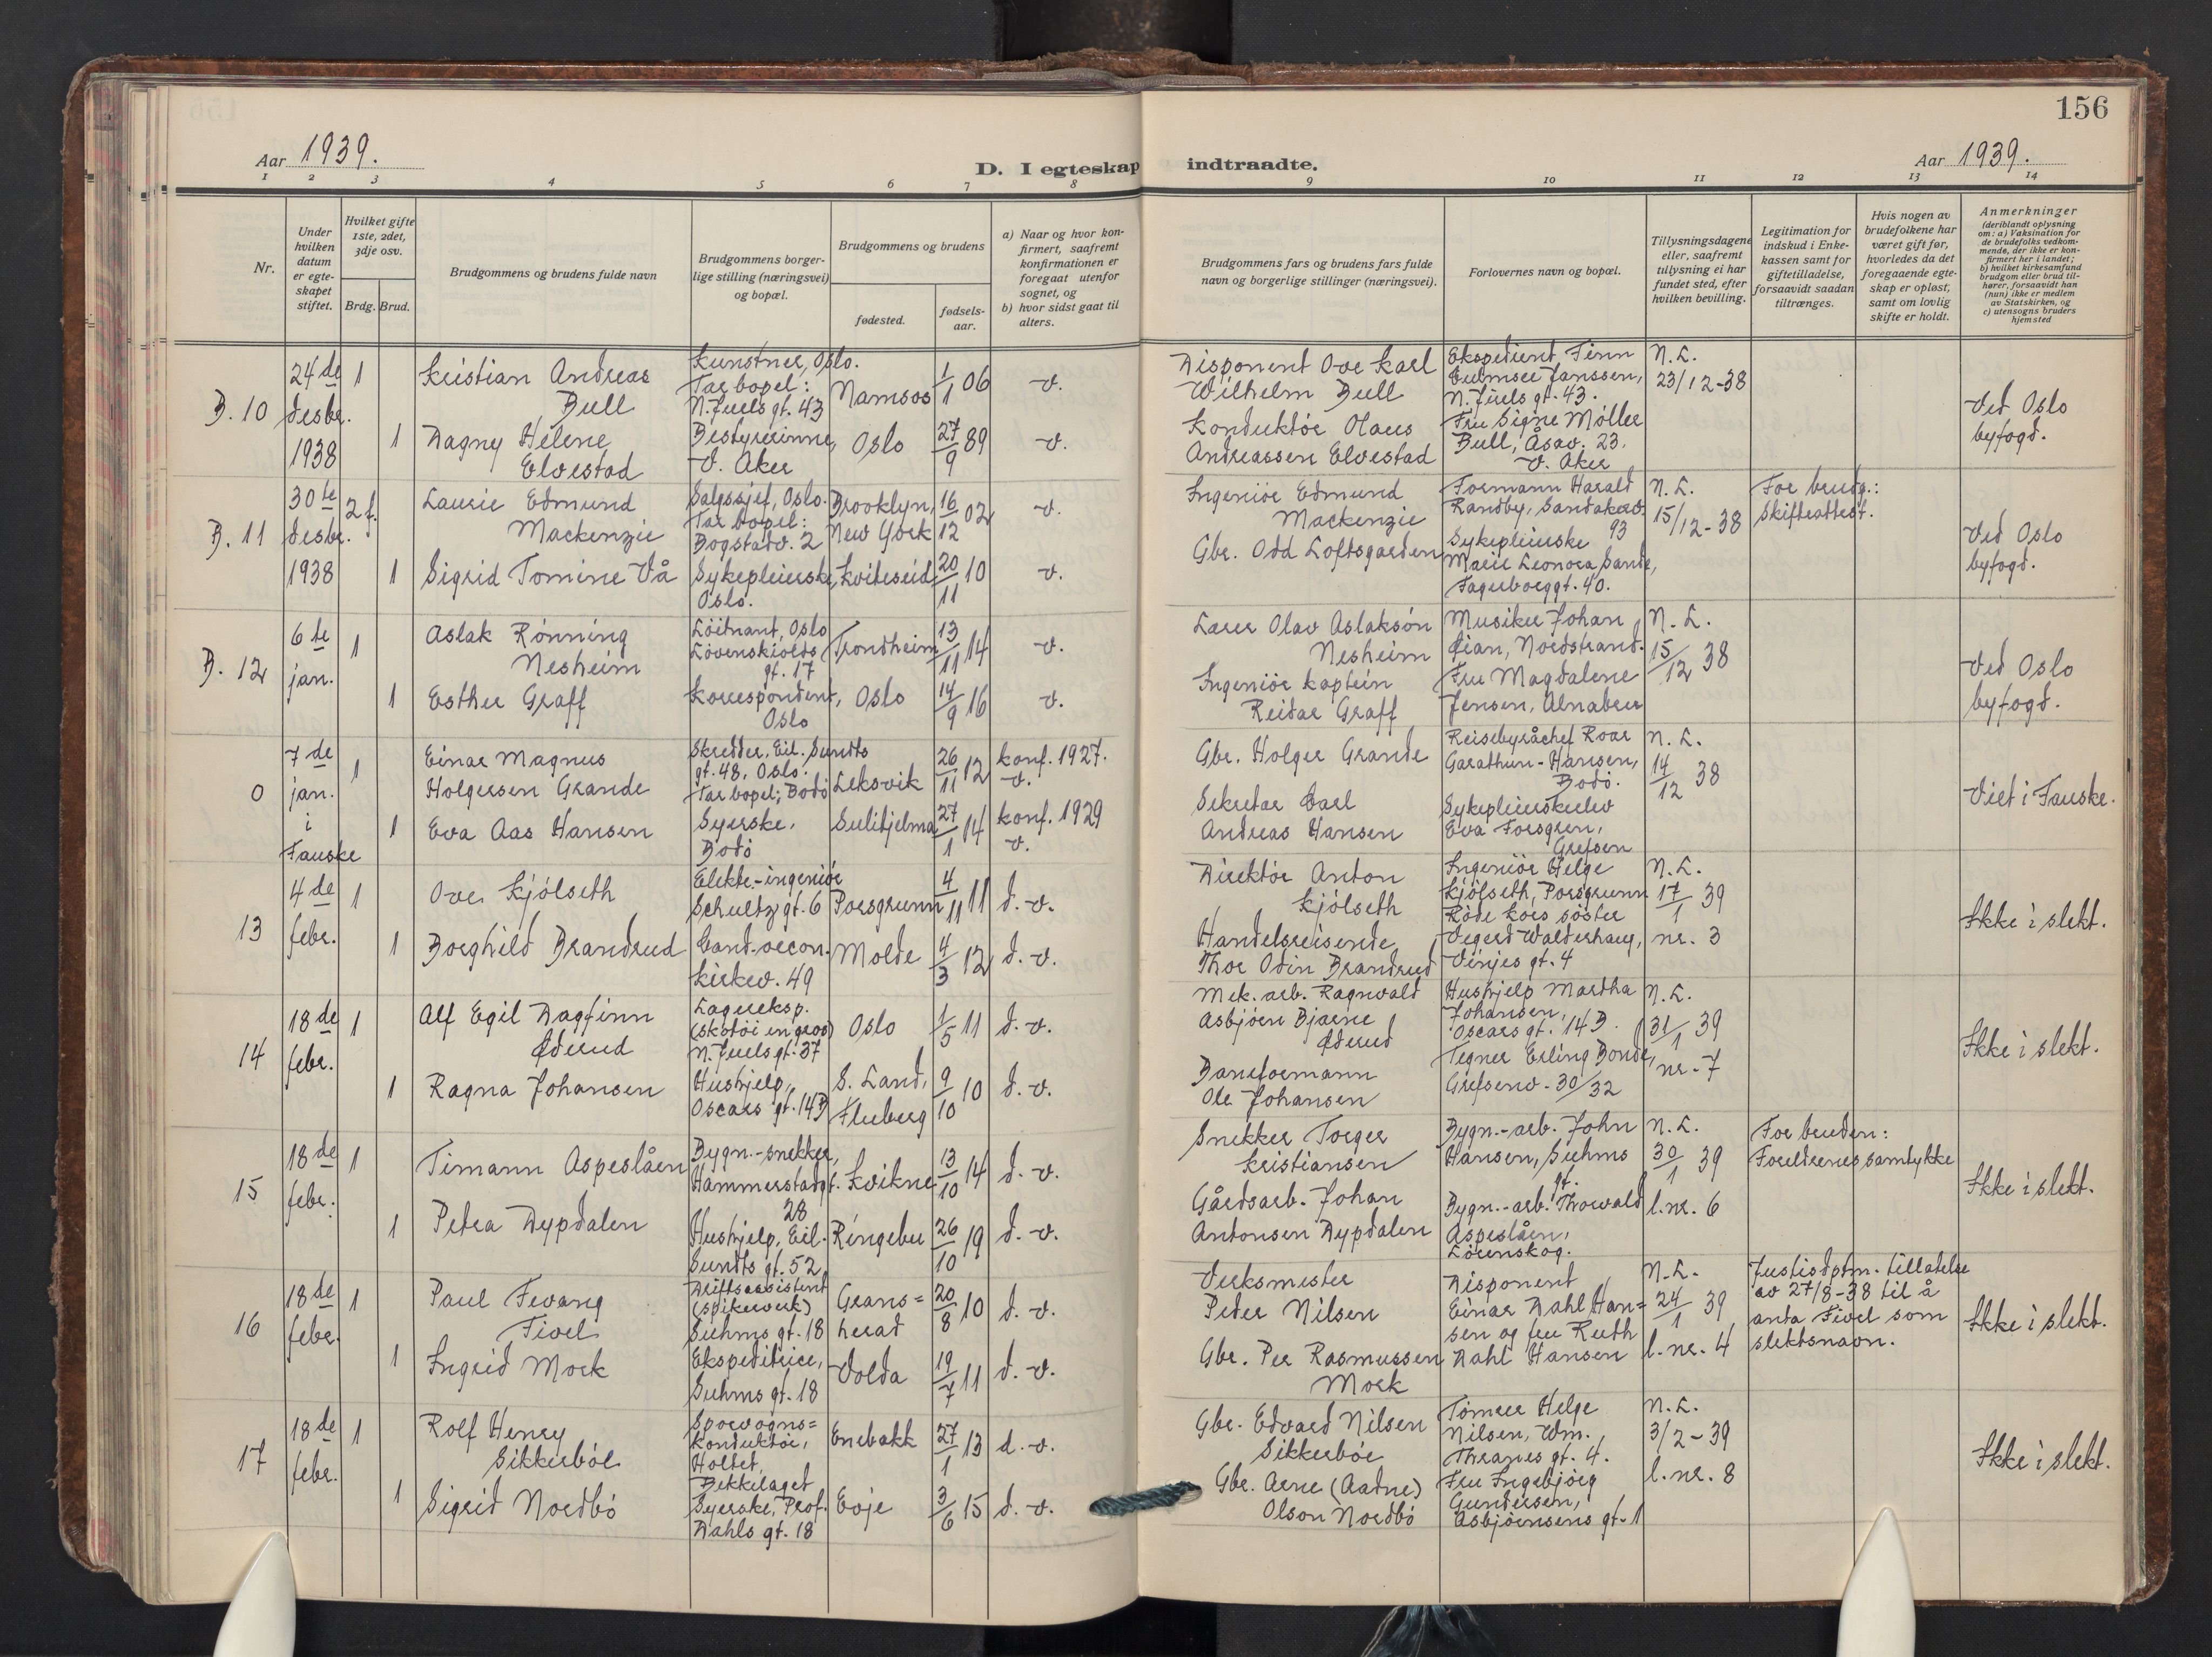 156
Aar 1939.
D. I egteskap indtraadte.
Aar 1939.
1 2 3 4 5 6 7 8 9 10 11 12 13 14
Nr.
Under
hvilken
datum
er egte-
skapet
stiftet.
Hvilket gifte
1ste, 2det,
3dje osv.
Brdg. Brud.
Brudgommens og brudens fulde navn
Brudgommens borger-
lige stilling (næringsvei)
og bopæl.
Brudgommens og brudens
fødested.
fødsels-
aar.
a) Naar og hvor kon-
firmert, saafremt
konfirmationen er
foregaat utenfor
sognet, og
b) hvor sidst gaat til
alters.
Brudgommens fars og brudens fars fulde
navn og borgerlige stillinger (næringsvei).
Forlovernes navn og bopæl.
Tillysningsdagene
eller, saafremt
tillysning ei har
fundet sted, efter
hvilken bevilling.
Legitimation for
indskud i Enke-
kassen samt for
giftetilladelse,
forsaavidt saadan
tiltrænges.
Hvis nogen av
brudefolkene har
været gift før,
hvorledes da det
foregaaende egte-
skap er opløst,
samt om lovlig
skifte er holdt.
Anmerkninger
(deriblandt oplysning
om: a) Vaksination for
de brudefolks vedkom-
mende, der ikke er kon-
firmert her i landet;
b) hvilket kirkesamfund
brudgom eller brud til-
hører, forsaavidt han
(hun) ikke er medlem
av Statskirken, og
c) utensogns bruders
hjemsted
B. 10
24de
desbr.
1938
1
Kristian Andreas
Bull
Kunstner, Oslo.
Tar bopel:
N. Juels gt. 43
Namsos
1/1 06
v.
Disponent Ove Karl
Wilhelm Bull
Ekspedient Finn
Culmsee Janssen,
N. Juels gt. 43.
N. L.
23/12-38
Ved Oslo
byfogd.
1
Dagny Helene
Elvestad
Bestyrerinne,
V. Aker
Oslo
27/9 89
v.
Konduktör Olaus
Andreassen Elvestad
Fru Signe Møller
Bull, Åsav. 23.
V. Aker
B. 11
30te
desbr.
1938
2 f.
Laurie Edmund
Mackenzie
Salgssjef, Oslo.
Tar bopel:
Bogstadv. 2
Brooklyn,
New York
16/12 02
v.
Ingeniör Edmund
Mackenzie
Formann Harald
Randby, Sandakerv.
93
N. L.
15/12-38
For brudg.:
Skifteattest.
Ved Oslo
byfogd.
1
Sigrid Tomine Vå
Sykepleierske,
Oslo.
Kviteseid
20/11 10
v.
Gbr. Odd Loftsgarden
Sykepleierske
Marie Leonora Sande,
Fagerborggt. 40.
B. 12
6te
jan.
1
Aslak Rönning
Nesheim
Löitnant, Oslo
Lövenskiolds
gt. 17
Trondheim
13/11 14
v.
Lærer Olav Aslaksön
Nesheim
Musiker Johan
Öian, Nordstrand.
N. L.
15/12 38
Ved Oslo
byfogd.
1
Esther Graff
Korrespondent,
Oslo
Oslo
14/9 16
v.
Ingeniör kaptein
Reidar Graff
Fru Magdalene
Jensen, Alnabru
0
7de
jan.
i
Fauske
1
Einar Magnus
Holgersen Grande
Skredder, Eil. Sundts
gt. 48, Oslo.
Tar bopel; Bodö
Leksvik
26/11 12
konf. 1927.
v.
Gbr. Holger Grande
Reisebyråchef Roar
Garathun-Hansen,
Bodö.
N. L.
14/12 38
Viet i Fauske.
1
Eva Aas Hansen
Syerske,
Bodö
Sulitjelma
27/1 14
konf. 1929
v.
Sekretær Carl
Andreas Hansen
Sykepleierskeelev
Eva Forsgren,
Grefsen
13
4de
febr.
1
Ove Kjölseth
Elektr.-ingeniör
Schultz gt. 6
Porsgrunn
4/11 11
d. v.
Direktör Anton
Kjölseth
Ingeniör Helge
Kjölseth, Porsgrunn
N. L.
17/1 39
nr. 3
Ikke i slekt.
1
Borghild Brandrud
Cand. oecon.
Kirkev. 49
Molde
4/3 12
d. v.
Handelsreisende
Thor Odin Brandrud
Röde Kors söster
Vegerd Walderhaug,
Vinjes gt. 4
14
18de
febr.
1
Alf Egil Dagfinn
Öderud
Lagereksp.
(skotöi en gros)
N. Juels gt. 37
Oslo
1/5 11
d. v.
Mek. arb. Ragnvald
Asbjörn Bjarne
Öderud
Hushjelp Martha
Johansen,
Oscars gt. 14 B.
N. L.
31/1 39
nr. 7
Ikke i slekt.
1
Ragna Johansen
Hushjelp,
Oscars gt. 14B
S. Land,
Fluberg
9/10 10
d. v.
Baneformann
Ole Johansen
Tegner Erling Bonde,
Grefsenv. 30/32
15
18de
febr.
1
Timann Aspeslåen
Bygn.-snekker,
Hammerstadgt.
28
Kvikne
13/10 14
d. v.
Snekker Torger
Kristiansen
Bygn.-arb. John
Hansen, Suhms
gt.
N. L.
30/1 39
l. nr. 6
For bruden:
Foreldrenes samtykke
Ikke i slekt.
1
Petra Dypdalen
Hushjelp, Eil.
Sundts gt. 52
Ringebu
26/10 19
d. v.
Gårdsarb. Johan
Antonsen Dypdalen
Bygn.-arb. Thorvald
Aspeslåen,
Lörenskog.
16
18de
febr.
1
Paul Fevang
Fivel
Driftsassistent
(spikerverk)
Suhms gt. 18
Grans=
herad
20/8 10
d. v.
Verksmester
Peder Nilsen
Disponent
Einar Dahl Han=
sen og fru Ruth
Dahl Hansen
N. L.
24/1 39
l. nr. 4
Justisdptm. tillatelse
av 27/8-38 til å
anta Fivel som
slektsnavn.
Ikke i slekt.
1
Ingrid Mork
Ekspeditrice,
Suhms gt. 18
Volda
19/7 11
d. v.
Gbr. Per Rasmussen
Mork
17
18de
febr.
1
Rolf Henry
Sikkerböl
Sporvogns=
konduktör,
Holtet,
Bekkelaget
Enebakk
27/1 13
d. v.
Gbr. Edvard Nilsen
Sikkerböl
Tömrer Helge
Nilsen, Wm.
Thranes gt. 4.
N. L.
3/2-39
l. nr. 8
Ikke i slekt.
1
Sigrid Nordbö
Syerske, Prof.
Dahls gt. 18
Evje
3/6 15
d. v.
Gbr. Arne (Aadne)
Olson Nordbö
Fru Ingebjörg
Gundersen,
Asbjörnsens gt. 1